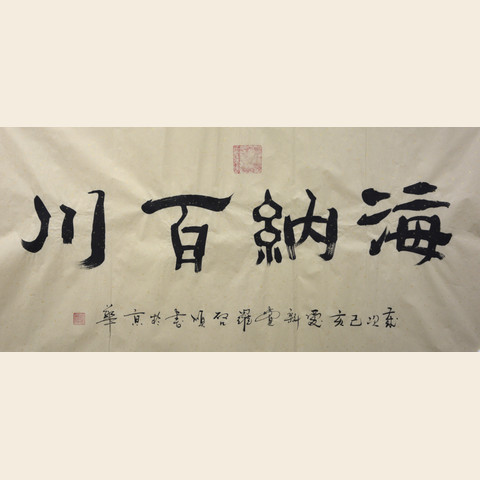 海納百川
歲次己亥愛新覺羅启順書於京華